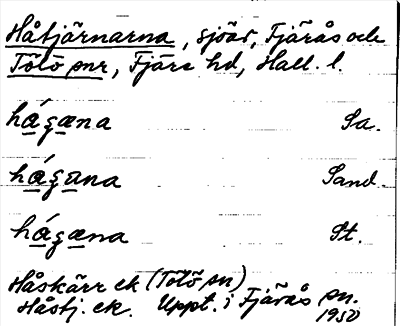 Håtjärnarna, sjöar, Fjärås och
Tölö snr, Fjäre hd, Hall. l.
hágæna Sa.
hágna Sand.
hágæna St.
Håskärr ek (Tölö sn)
Håstj. ek. Uppt. i Fjärås sn.
1950